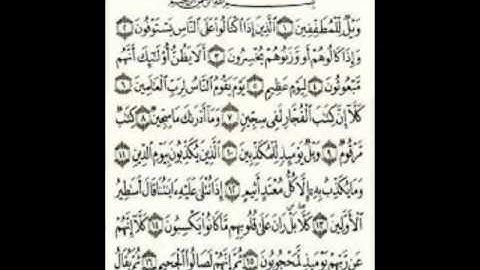 بِسْمِ اللَّهِ الرَّحْمَٰنِ الرَّحِيمِ
وَيْلٌ لِّلْمُطَفِّفِينَ ١ الَّذِينَ إِذَا اكْتَالُوا عَلَى النَّاسِ يَسْتَوْفُونَ ٢
وَإِذَا كَالُوهُمْ أَو وَّزَنُوهُمْ يُخْسِرُونَ ٣ أَلَا يَظُنُّ أُوْلَٰئِكَ أَنَّهُم
مَّبْعُوثُونَ ٤ لِيَوْمٍ عَظِيمٍ ٥ يَوْمَ يَقُومُ النَّاسُ لِرَبِّ الْعَالَمِينَ ٦
كَلَّا إِنَّ كِتَٰبَ الْفُجَّارِ لَفِي سِجِّينٍ ٧ وَمَا أَدْرَىٰكَ مَا سِجِّينٌ ٨ كِتَٰبٌ
مَّرْقُومٌ ٩ وَيْلٌ يَوْمَئِذٍ لِّلْمُكَذِّبِينَ ١٠ الَّذِينَ يُكَذِّبُونَ بِيَوْمِ الدِّينِ ١١
وَمَا يُكَذِّبُ بِهِ إِلَّا كُلُّ مُعْتَدٍ أَثِيمٍ ١٢ إِذَا تُتْلَىٰ عَلَيْهِ ءَايَٰتُنَا قَالَ أَسَٰطِيرُ
الْأَوَّلِينَ ١٣ كَلَّا بَلْ رَانَ عَلَىٰ قُلُوبِهِم مَّا كَانُوا يَكْسِبُونَ ١٤ كَلَّا إِنَّهُمْ
عَن رَّبِّهِمْ يَوْمَئِذٍ لَّمَحْجُوبُونَ ١٥ ثُمَّ إِنَّهُمْ لَصَالُوا الْجَحِيمِ ١٦ ثُمَّ يُقَالُ